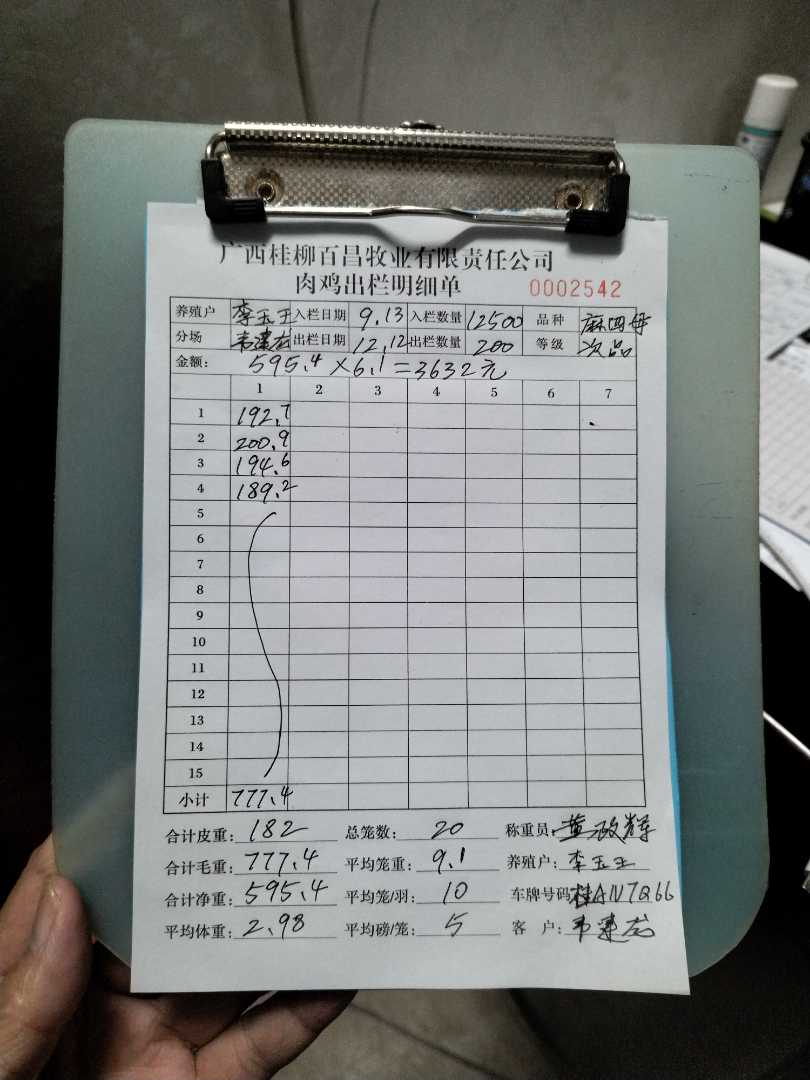 广西桂柳百昌牧业有限责任公司
肉鸡出栏明细单 0002542
养殖户 李玉王 入栏日期 9.13 入栏数量 12500 品种 麻四母
分场 韦建龙 出栏日期 12.12 出栏数量 200 等级 次品
金额: 595.4×6.1=3632元
1 2 3 4 5 6 7
1 192.7
2 200.9
3 194.6
4 189.2
5
6
7
8
9
10
11
12
13
14
15
小计 777.4
合计皮重: 182 总笼数: 20 称重员: 黄政辉
合计毛重: 777.4 平均笼重: 9.1 养殖户: 李玉王
合计净重: 595.4 平均笼/羽: 10 车牌号码 桂AN7Q66
平均体重: 2.98 平均磅/笼: 5 客 户: 韦建龙